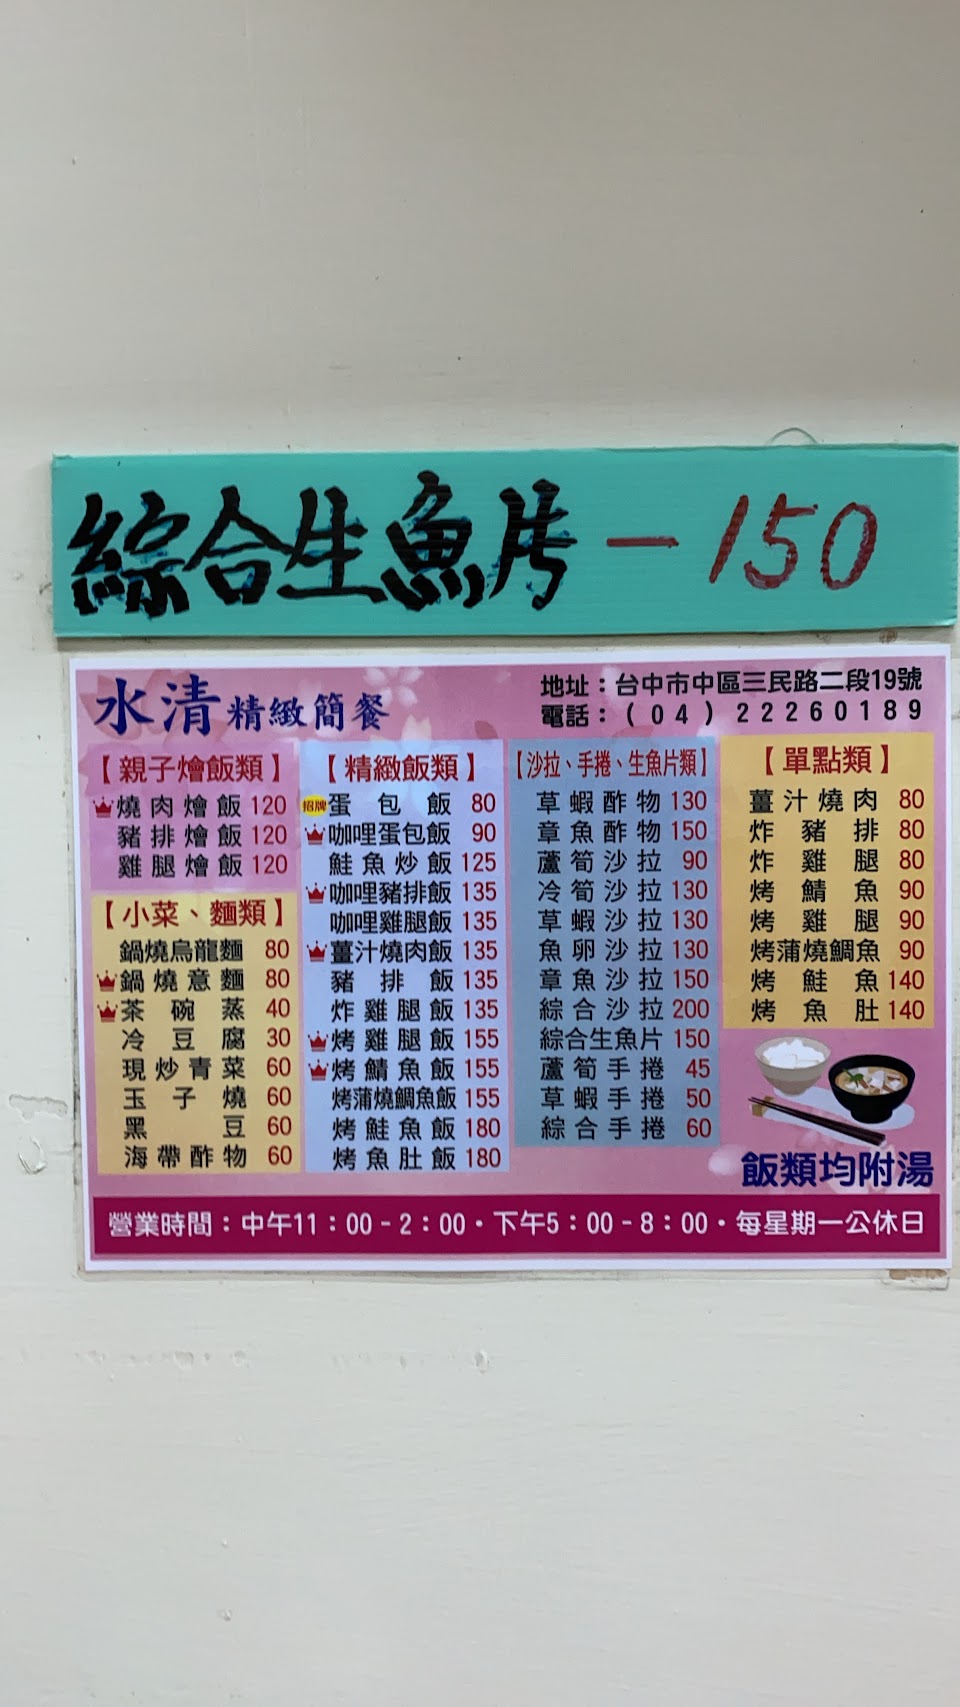 綜合生魚片－150
水清精緻簡餐
地址：台中市中區三民路二段19號
電話：(04) 22260189
【親子燴飯類】
燒肉燴飯 120
豬排燴飯 120
雞腿燴飯 120
【小菜、麵類】
鍋燒烏龍麵 80
鍋燒意麵 80
茶碗蒸 40
冷豆腐 30
現炒青菜 60
玉子燒 60
黑豆 60
海帶酢物 60
【精緻飯類】
招牌 蛋包飯 80
咖哩蛋包飯 90
鮭魚炒飯 125
咖哩豬排飯 135
咖哩雞腿飯 135
薑汁燒肉飯 135
豬排飯 135
炸雞腿飯 135
烤雞腿飯 155
烤鯖魚飯 155
烤蒲燒鯛魚飯 155
烤鮭魚飯 180
烤魚肚飯 180
【沙拉、手捲、生魚片類】
草蝦酢物 130
章魚酢物 150
蘆筍沙拉 90
冷筍沙拉 130
草蝦沙拉 130
魚卵沙拉 130
章魚沙拉 150
綜合沙拉 200
綜合生魚片 150
蘆筍手捲 45
草蝦手捲 50
綜合手捲 60
【單點類】
薑汁燒肉 80
炸豬排 80
炸雞腿 80
烤鯖魚 90
烤雞腿 90
烤蒲燒鯛魚 90
烤鮭魚 140
烤魚肚 140
飯類均附湯
營業時間：中午11：00－2：00・下午5：00－8：00・每星期一公休日